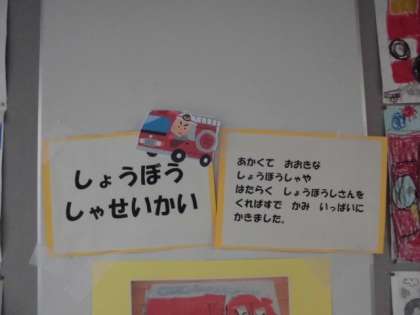 しょうぼう
しゃせいかい
あかくて おおきな
しょうぼうしゃや
はたらく しょうぼうしさんを
くれぱすで かみ いっぱいに
かきました。